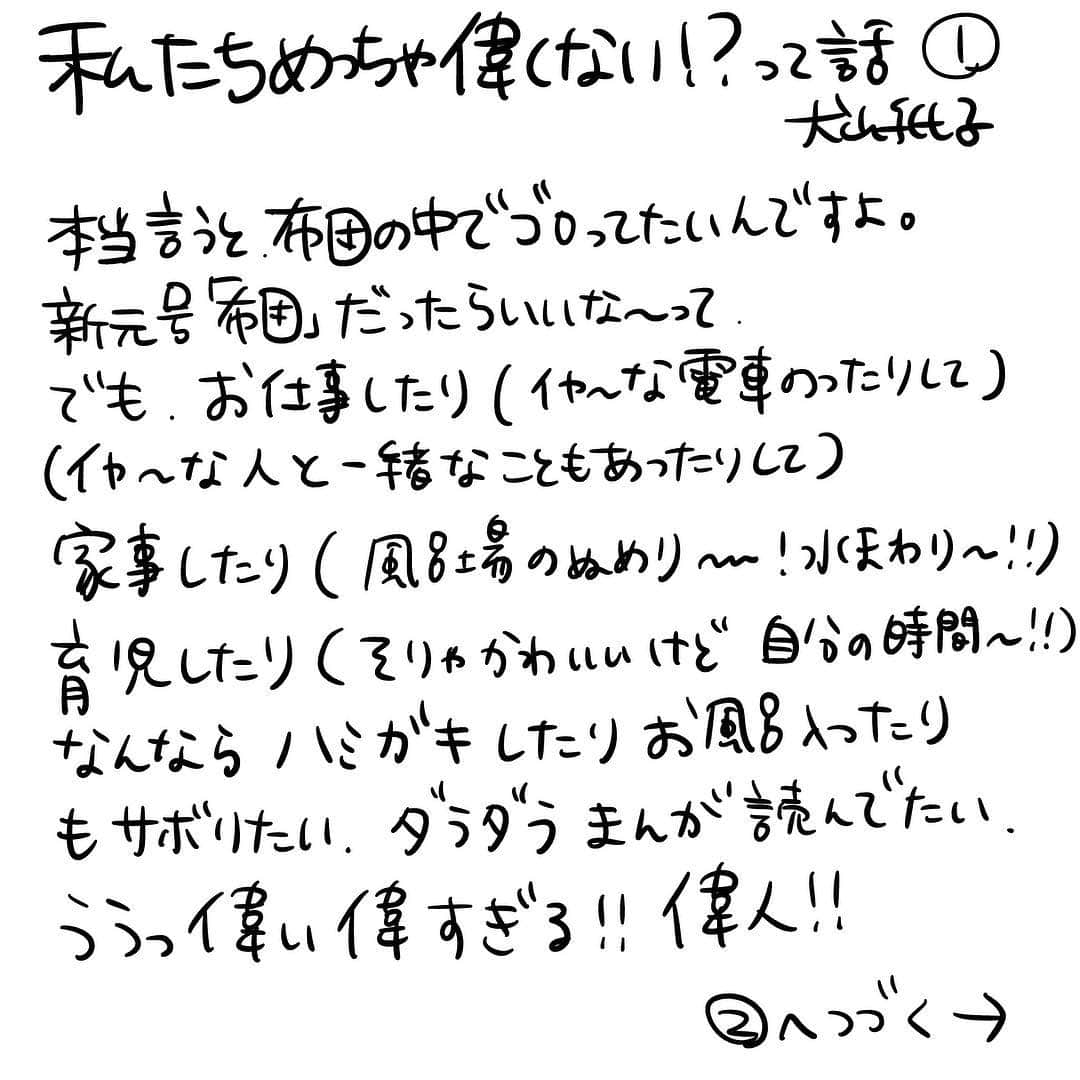 私たちめっちゃ偉くない!?って話 ①
犬山紙子
本当言うと、布団の中でゴロってたいんですよ。
新元号「布団」だったらいいな〜って.
でも、お仕事したり(イヤ〜な電車のったりして)
(イヤ〜な人と一緒なこともあったりして)
家事したり(風呂場のぬめり〜!水まわり〜!!)
育児したり(そりゃかわいいけど 自分の時間〜!!)
なんなら ハミガキしたりお風呂入ったり
もサボりたい. ダラダラ まんが読んでたい.
ううっ偉い偉すぎる!! 偉人!!
②へつづく→